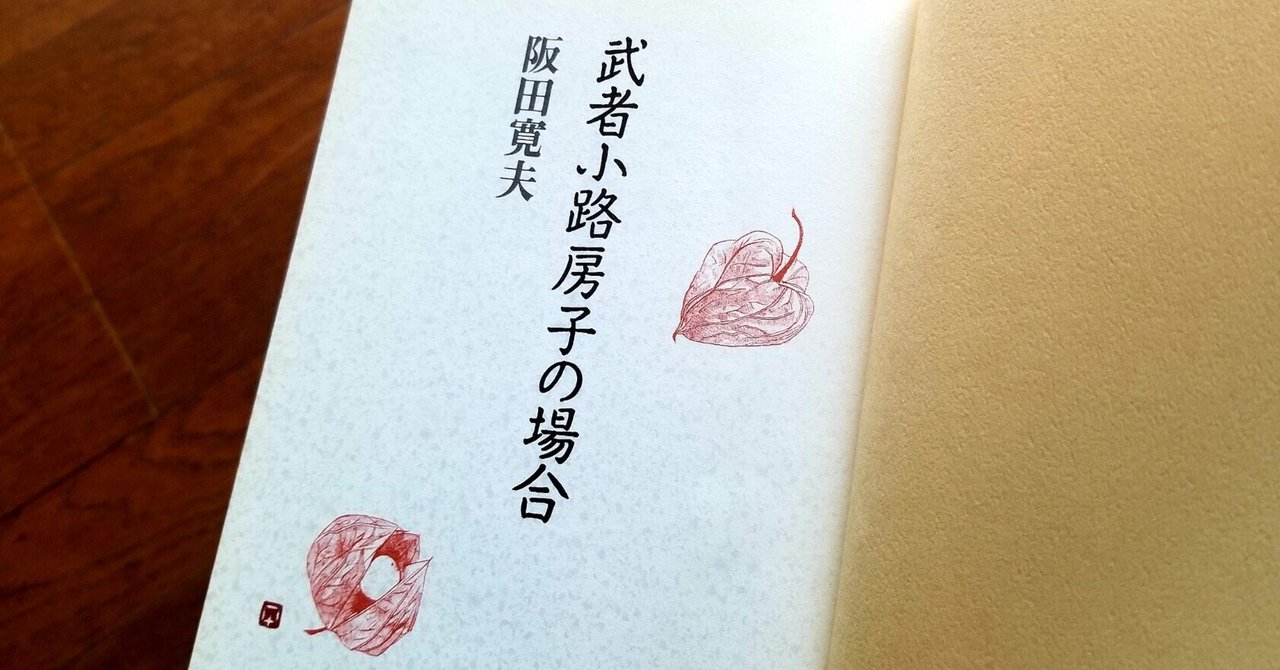 武者小路房子の場合
阪田寛夫